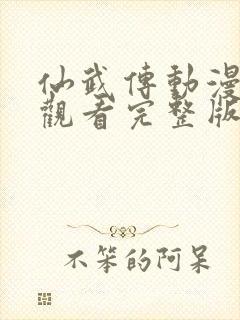 仙武傳動漫
觀看完整版
不笨的阿呆